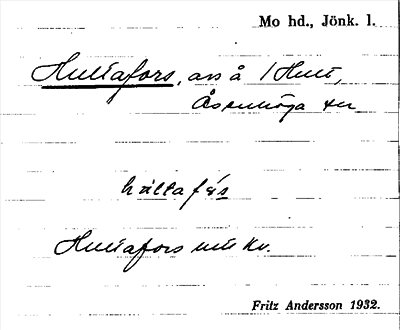 Mo hd., Jönk. l.
Hultafors, avs å 1 Hult,
Åsenhöga sn
hùltafȯs
Hultafors ek Kv.
Fritz Andersson 1932.